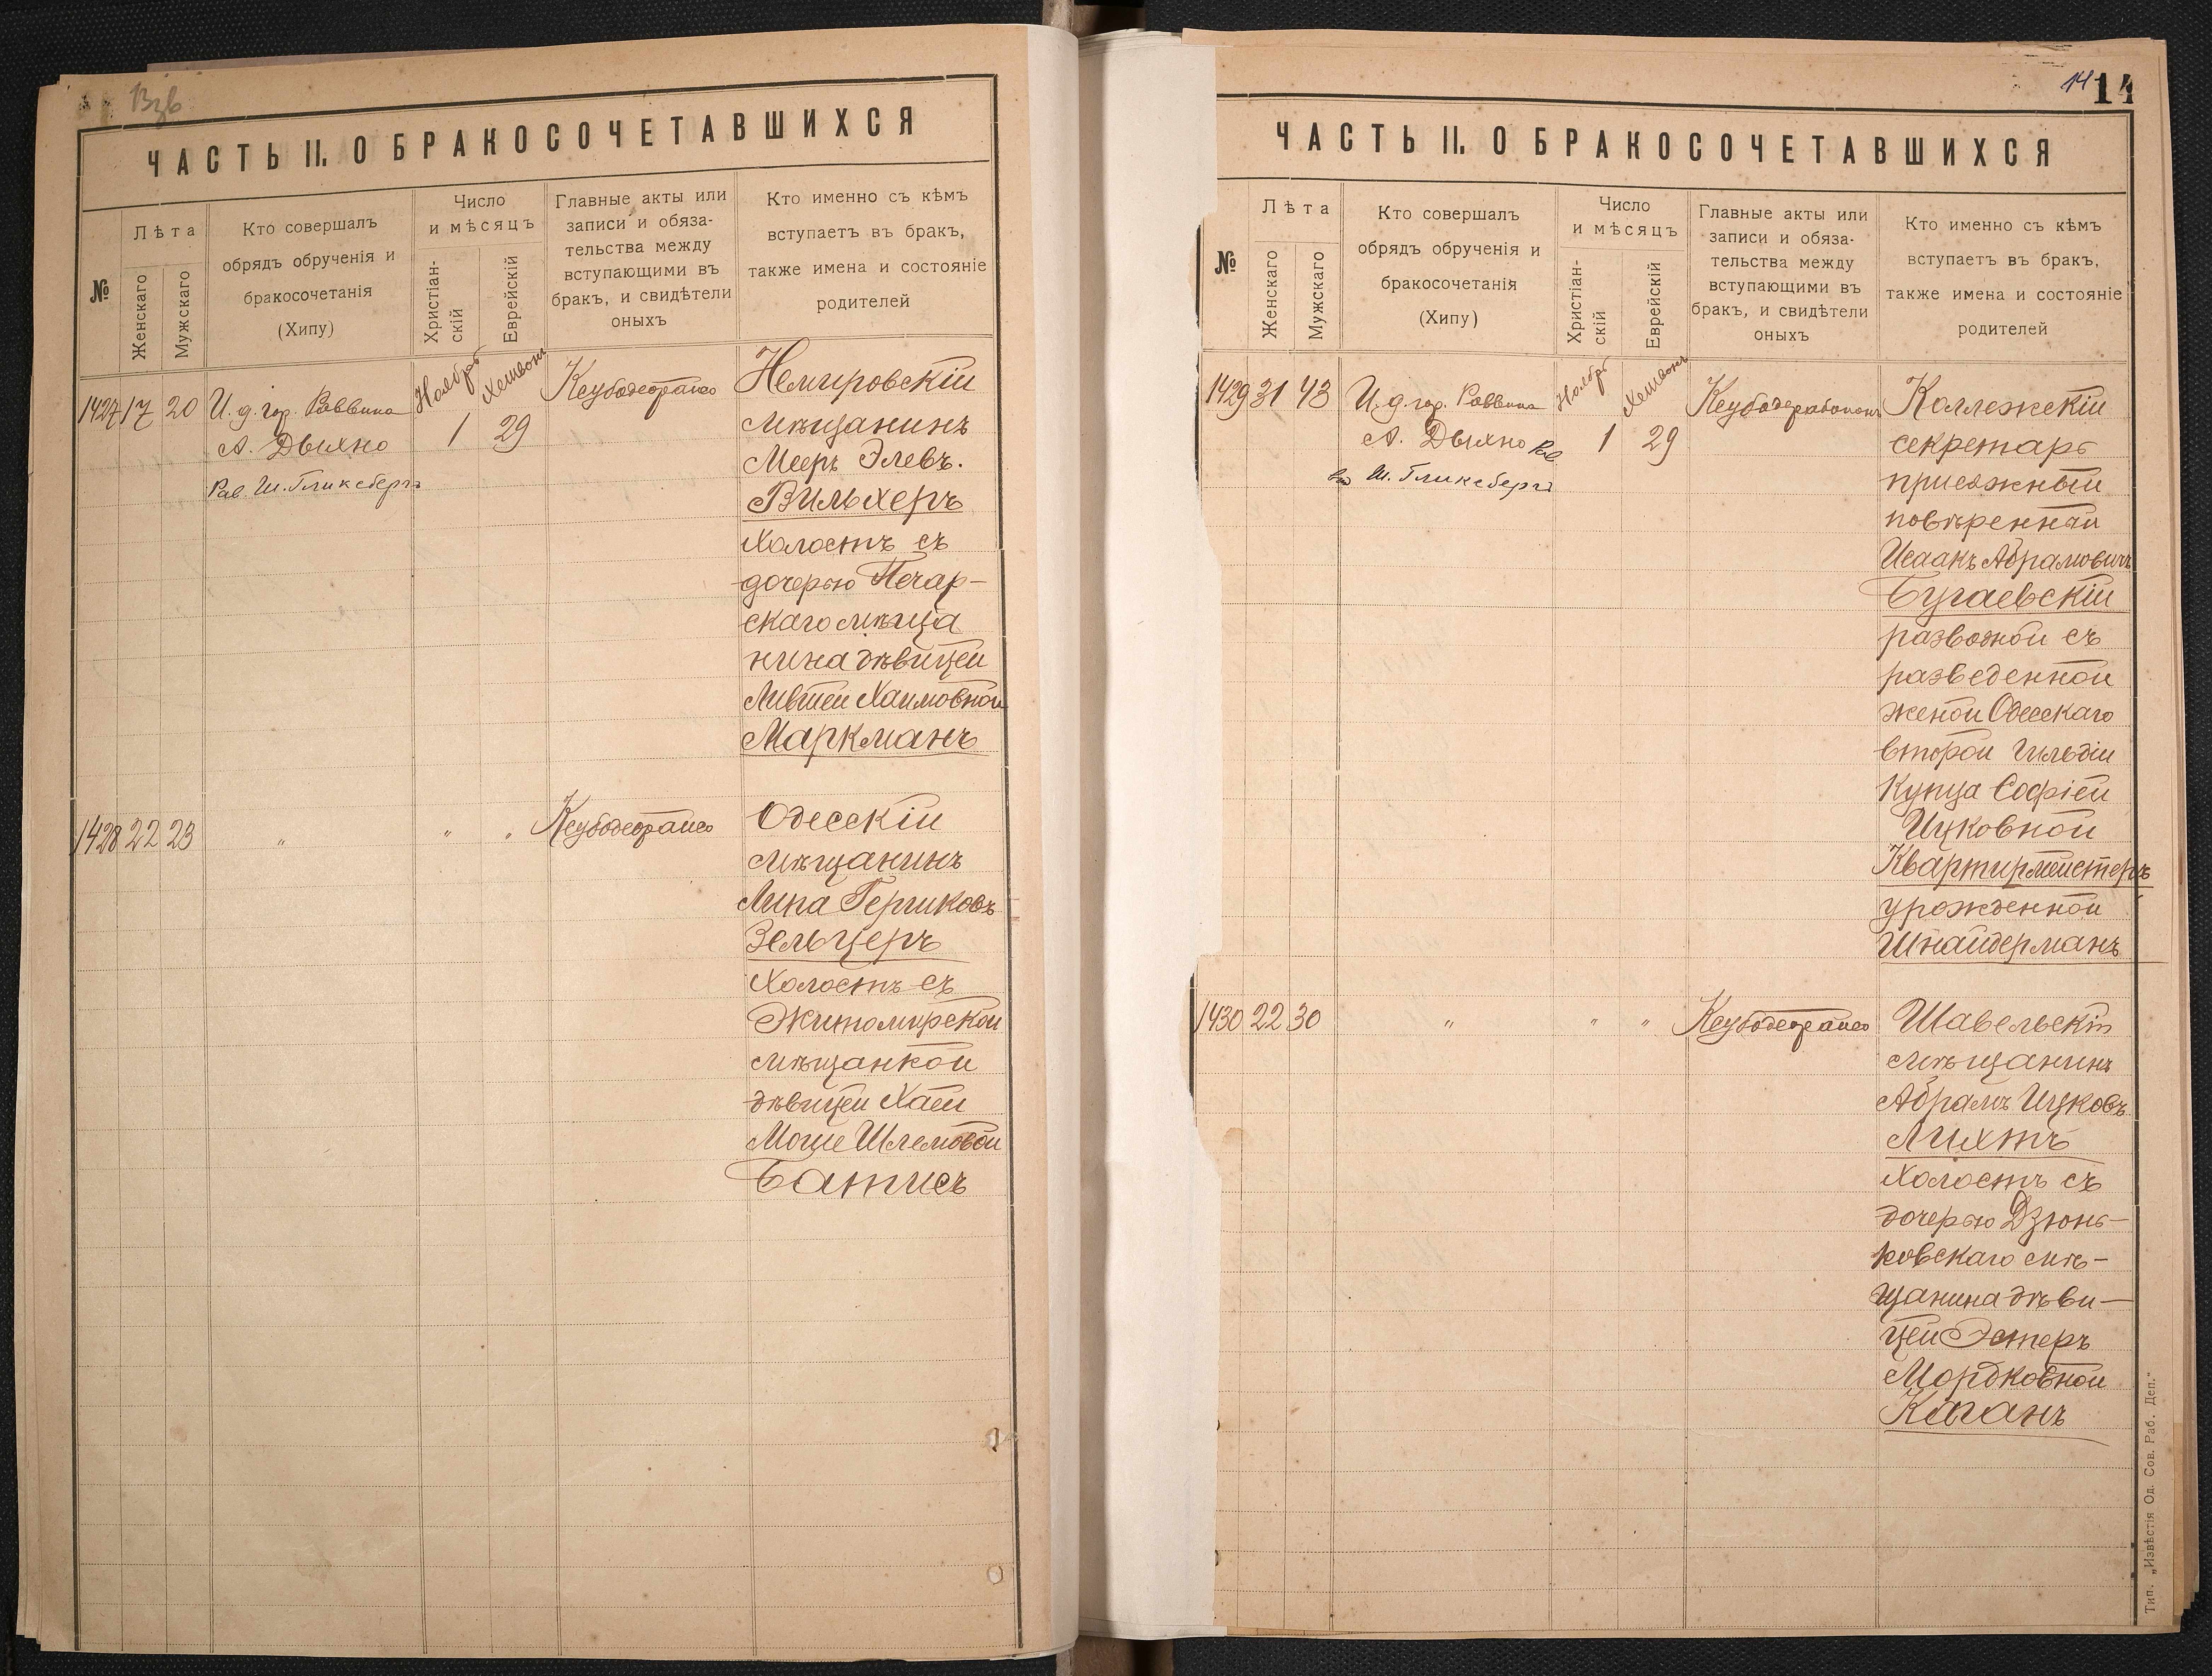 ЧАСТЬ II. О БРАКОСОЧЕТАВШИХСЯ
№
Лѣта
Женскаго
Мужскаго
Кто совершалъ
обрядъ обрученія и
бракосочетанія
(Хипу)
Число
и мѣсяцъ
Христіан-
скій
Еврейскій
Главные акты или
записи и обяза-
тельства между
вступающими въ
бракъ, и свидѣтели
оныхъ
Кто именно съ кѣмъ
вступаетъ въ бракъ,
также имена и состояніе
родителей
1427 17 20
И. д. гор. Раввина
А. Дыхно
Рав. Ш. Гликсбергъ
Ноябрь
1
Хешвонъ
29
Немировскій
мѣщанинъ
Мееръ Элевъ.
Вильхеръ
холостъ съ
дочерью Печар-
скаго мѣща
нина дѣвицей
Лившей Хаимовной
Маркманъ
1428 22 23
"
" "
Одесскій
мѣщанинъ
Липа Гершковъ
Зельцеръ
холостъ съ
Житомирской
мѣщанкой
дѣвицей Хаей
Моше Шлемовой
Батисъ
14 14
ЧАСТЬ II. О БРАКОСОЧЕТАВШИХСЯ
№
Лѣта
Женскаго
Мужскаго
Кто совершалъ
обрядъ обрученія и
бракосочетанія
(Хипу)
Число
и мѣсяцъ
Христіан-
скій
Еврейскій
Главные акты или
записи и обяза-
тельства между
вступающими въ
бракъ, и свидѣтели
оныхъ
Кто именно съ кѣмъ
вступаетъ въ бракъ,
также имена и состояніе
родителей
1429 31 43
И. д. гор. Раввина
А. Дыхно Рав
Ш. Гликсбергъ
Ноябрь
1
Хешвонъ
29
Коллежскій
секретарь
присяжный
повѣренный
Исаакъ Абрамовичъ
Бугаевскій
разводной съ
разведенной
женой Одесскаго
второй гильдіи
Купца Софіей
Ицковной
Квартирмейстеръ
урожденной
Шнайдерманъ
1430 22 30
"
" "
Шавельскій
мѣщанинъ
Абрамъ Ицковъ
Лихтъ
холостъ съ
дочерью Дзюнь-
ковскаго мѣ-
щанина дѣви-
цей Эстеръ
Мордковной
Каганъ
Тип. „Извѣстія Од. Сов. Раб. Деп."